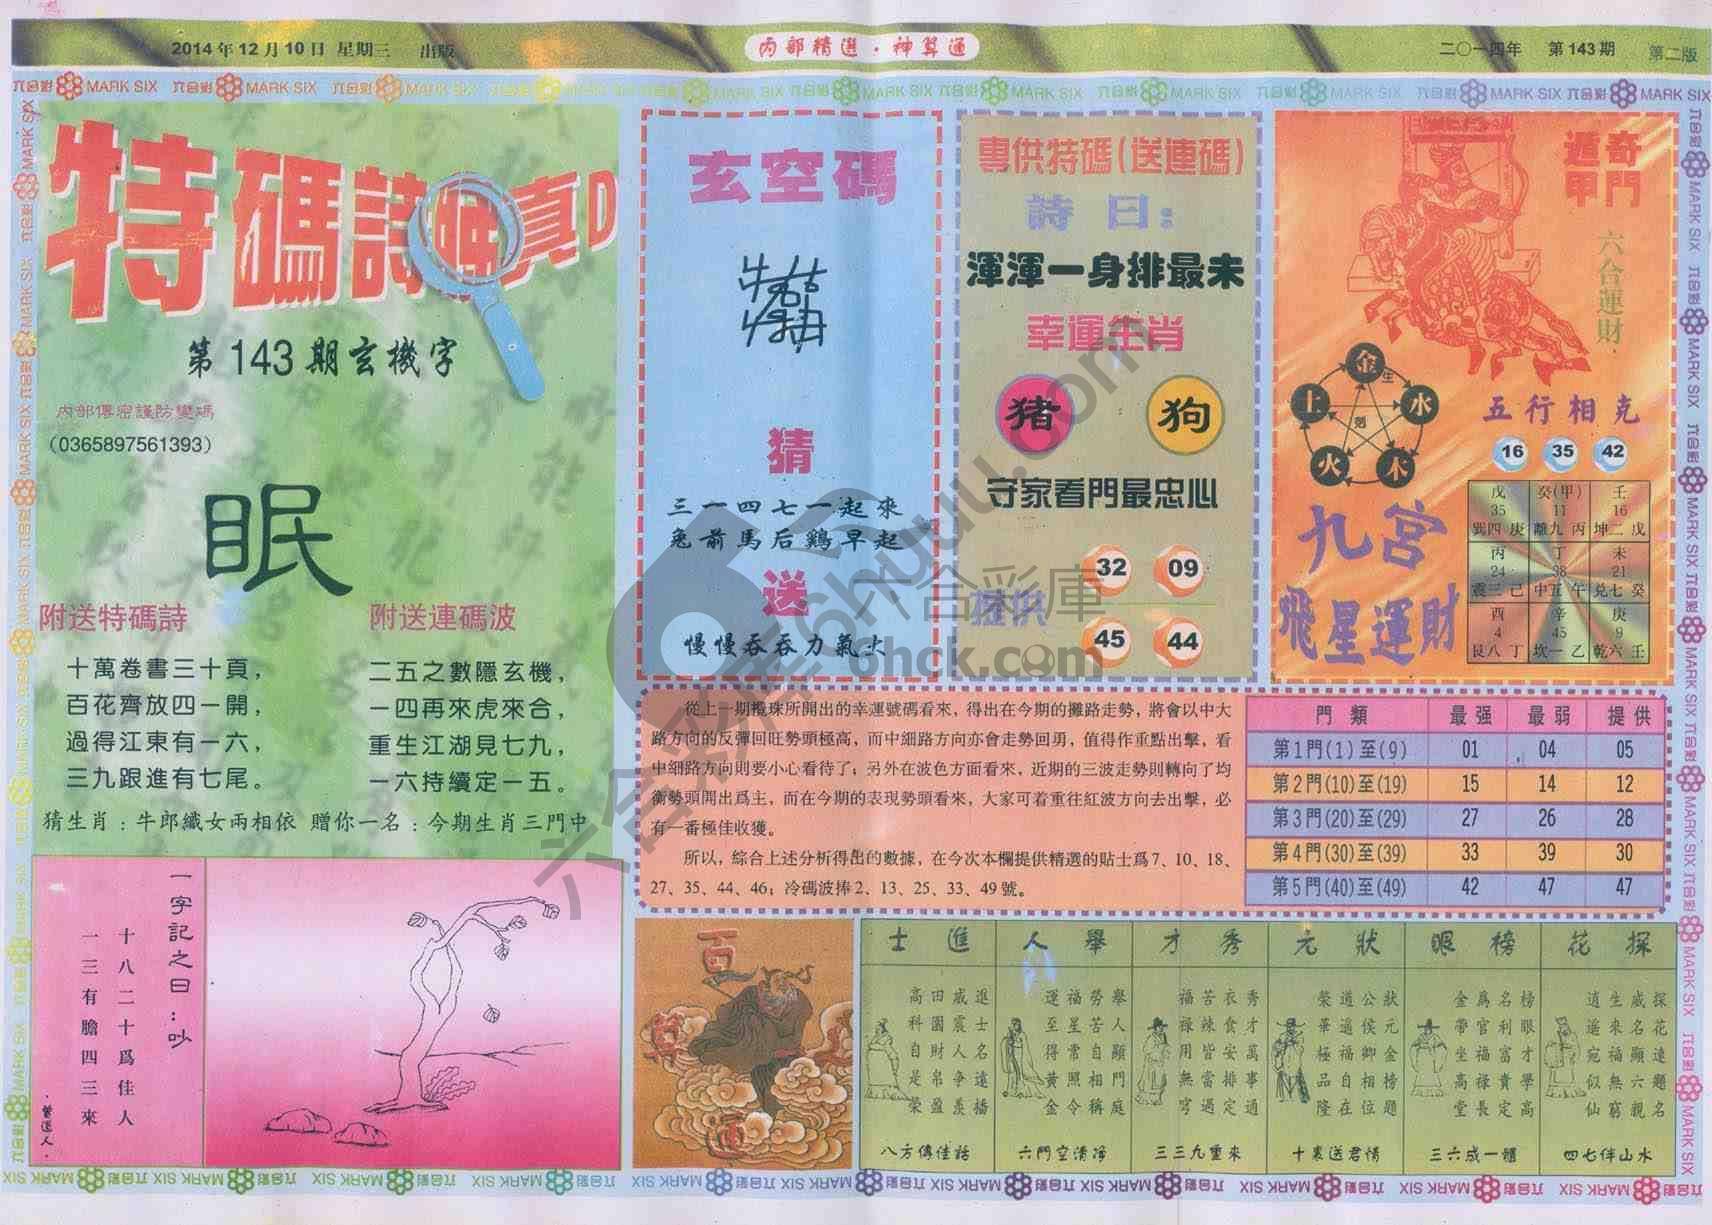 2014年12月10日 星期三 出版
內部精選·神算通
二〇一四年 第143期 第二版
六合彩 MARK SIX
特碼詩
真D
第143期玄機字
內部傳密謹防變碼
(0365897561393)
眠
附送特碼詩
十萬卷書三十頁，
百花齊放四一開，
過得江東有一六，
三九跟進有七尾。
附送連碼波
二五之數隱玄機，
一四再來虎來合，
重生江湖見七九，
一六持續定一五。
猜生肖：牛郎織女兩相依 贈你一名：今期生肖三門中
一字記之曰：吵
十八二十爲佳人
一三有膽四三來
·曾道人·
玄空碼
猜
三一四七一起來
兔前馬后鷄早起
送
慢慢吞吞力氣大
專供特碼(送連碼)
詩曰：
渾渾一身排最末
幸運生肖
猪 狗
守家看門最忠心
提供
32 09
45 44
奇門遁甲
六合運財
金 生 水 木 火 土 剋
五行相克
16 35 42
九宮
飛星運財
戊 癸(甲) 壬
35 11 16
巽四 庚 離九 丙 坤二 戊
丙 丁 未
24 38 21
震三 己 中五 午 兑七 癸
酉 辛 庚
4 45 9
艮八 丁 坎一 乙 乾六 壬
從上一期攪珠所開出的幸運號碼看來，得出在今期的攤路走勢，將會以中大
路方向的反彈回旺勢頭極高，而中細路方向亦會走勢回勇，值得作重點出擊，看
中細路方向則要小心看待了；另外在波色方面看來，近期的三波走勢則轉向了均
衡勢頭開出爲主，而在今期的表現勢頭看來，大家可着重往紅波方向去出擊，必
有一番極佳收獲。
所以，綜合上述分析得出的數據，在今次本欄提供精選的貼士爲7、10、18、
27、35、44、46；冷碼波捧2、13、25、33、49號。
門類 最强 最弱 提供
第1門(1)至(9) 01 04 05
第2門(10)至(19) 15 14 12
第3門(20)至(29) 27 26 28
第4門(30)至(39) 33 39 30
第5門(40)至(49) 42 47 47
百
探花
探花遠題名
威名顯六親
生來福無窮
逍遥宛似仙
四七伴山水
榜眼
榜眼才學高
名利富貴定
爲官福禄長
金帶坐高堂
三六成一體
狀元
狀元金榜題
公侯卿相位
道遥福自在
榮華極品隆
十裏送君情
秀才
秀才萬事通
衣食安排定
苦辣皆當過
福禄用無窮
三三九重來
舉人
舉人顯門庭
勞苦自相稱
福星常照令
運至得黄金
六門空清净
進士
進士名遠播
威震人争羨
田園財帛盈
高科自是榮
八方傳佳話
六合彩庫
6hck.com
六合彩庫6hcku.com